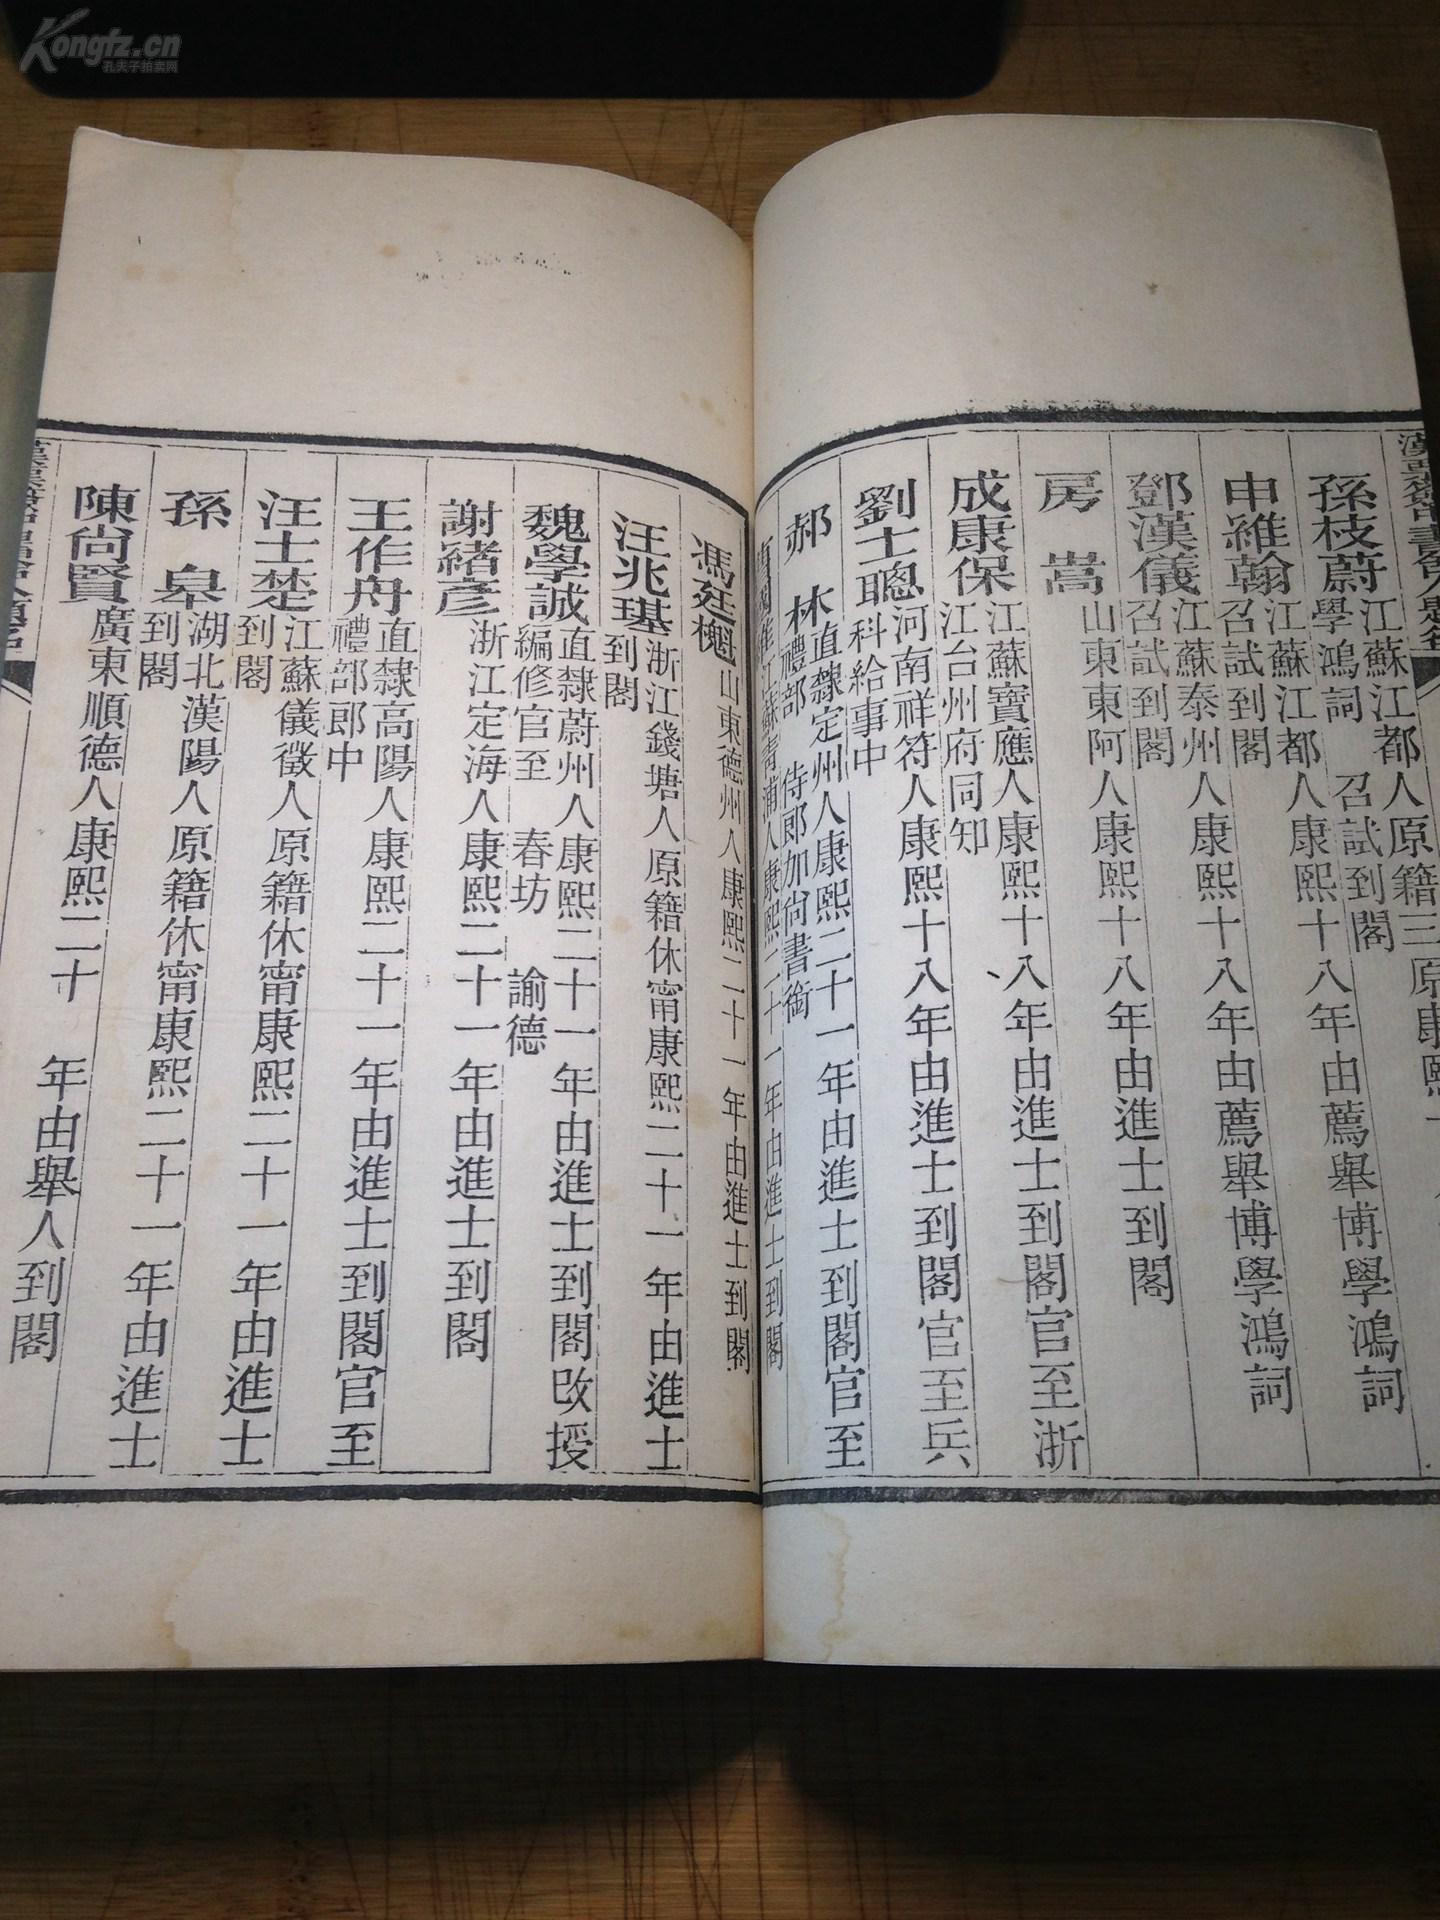 Kongfz.cn
孔夫子拍卖网
孫枝蔚江蘇江都人原籍三原康熙十八年由薦舉博學鴻詞
學鴻詞 召試到閣
申維翰江蘇江都人康熙十八年由薦舉博學鴻詞
召試到閣
鄧漢儀江蘇泰州人康熙十八年由薦舉博學鴻詞
召試到閣
房 嵩山東東阿人康熙十八年由進士到閣
成康保江蘇寶應人康熙十八年由進士到閣官至浙
江台州府同知
劉士聰河南祥符人康熙十八年由進士到閣官至兵
科給事中
郝 林直隸定州人康熙二十一年由進士到閣官至
禮部 侍郎加尚書銜
江蘇青浦人康熙二十一年由進士到閣
馮廷櫆山東德州人康熙二十一年由進士到閣
汪兆璂浙江錢塘人原籍休甯康熙二十一年由進士
到閣
魏學誠直隸蔚州人康熙二十一年由進士到閣改授
編修官至 春坊 諭德
謝緒彥浙江定海人康熙二十一年由進士到閣
王作舟直隸高陽人康熙二十一年由進士到閣官至
禮部郎中
汪士楚江蘇儀徵人原籍休甯康熙二十一年由進士
到閣
孫 皋湖北漢陽人原籍休甯康熙二十一年由進士
到閣
陳尚賢廣東順德人康熙二十 年由舉人到閣